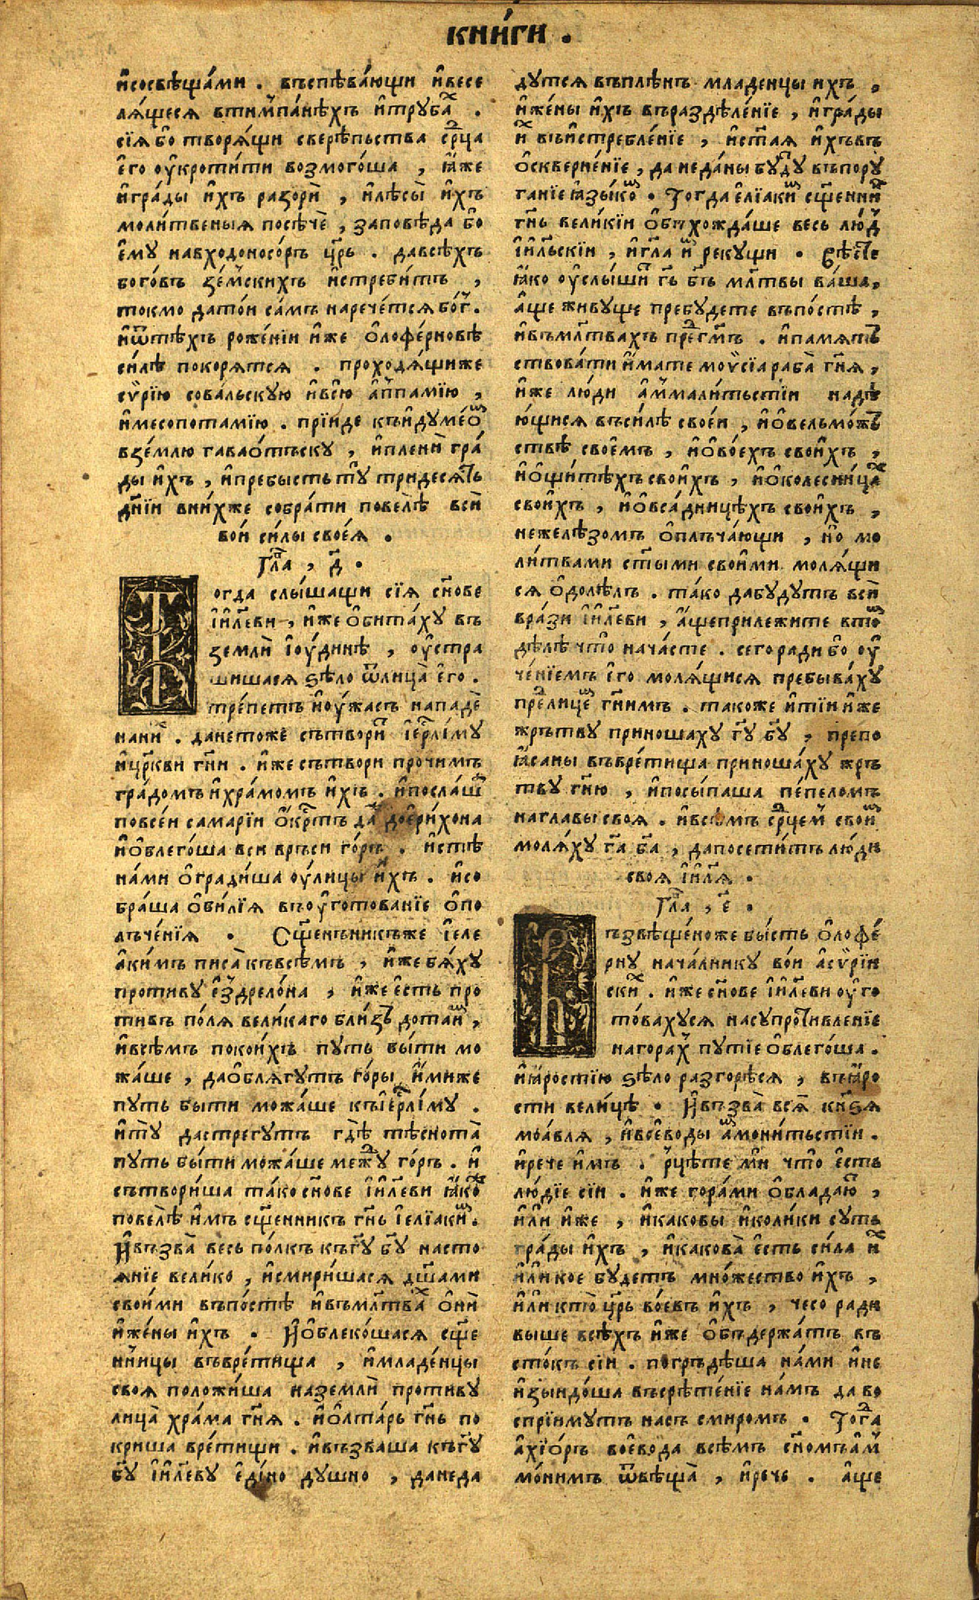 книги .
исосвѣщами . въспѣвающи ивесе
лящеся втимпанѣхъ итрубах .
сія бо творящи сверѣпьства срца
его укротити возмогоша , иже
играды ихъ разори , илѣсы ихъ
молитвеныя посѣче , заповѣда бо
ему навходоносоръ црь . давсѣхъ
боговъ земскихъ истребитъ ,
токмо датои самъ наречется бог .
иѿтѣхъ рожении иже олоферновѣ
силѣ покорятся . проходящиже
сѵрію совальскую ивсю аппамію ,
имесопотамію . пріиде къидумеом
вземлю гаваотъску , иплени гра
ды ихъ , ипребысть ту тридесять
дніи внихже собрати повелѣ вси
вои силы своея .
Гла , д .
Тогда слышащи сія снове
іилеви , иже обитаху въ
земли іоудинѣ , устра
шишася ѕѣло ѿлица его .
трепетъ иоужасъ нападе
нани . данетоже сътвори іерлиму
ицркви гни . иже сътвори прочимъ
градомъ ихрамомъ ихъ . ипослаша
повсеи самаріи окртъ даже доерихона
иоблегоша вси врьси горъ . истѣ
нами оградиша улицы ихъ . исо
браша обилія въуготованіе опо
лъченія . Сщеникъже іеле
акимъ писа къвсѣмъ , иже бяху
противу ездрелона , иже есть про
тивъ поля великаго близъ дотаи ,
ивсѣмъ покоихъ путь быти мо
жаше , даоблягутъ горы имиже
путь быти можаше къіерлиму .
иту дастрегутъ гдѣ тѣснота
путь быти можаше между горъ . и
сътвориша тако снове іилеви яко
повелѣ имъ сщенникъ гнь іеліаким .
Ивъзва весь полкъ къгу бу насто
яніе велико , исмиришася дшами
своими въпостѣ ивъмлтвах они
ижены ихъ . Иоблекошася сще
нницы въвретища , имладенцы
своя положиша наземли противу
лица храма гня . иолтарь гнь по
криша вретищи . ивъзваша къгу
бу іилеву единодушно , данеда
дутся въплѣнъ младенцы ихъ ,
ижены ихъ въразделеніе , играды
их въистребленіе , истая ихъвъ
осквернение , да неданы будут въпору
ганіе языком . Тогда еліаким сщенник
гнь великіи обихождаше весь люд
іильскіи , игла им рекущи . вѣсте
яко услыши гь бъ млтвы ваша ,
аще живуще пребудете въпостѣ ,
ивъмлтвахъ пред гмъ . ипамят
ствовати имате моѵсіа раба гня ,
иже люди аммалитьстіи надѣ
ющися въсилѣ своеи , иовельмож
ствѣ своемъ , иовоехъ своихъ ,
иощитѣхъ своихъ , иоколесницах
своихъ , иовсадницѣхъ своихъ ,
нежелѣзомъ оплъчающи , но мо
литвами стыми своими моляши
ся одолѣлъ . тако дабудутъ вси
врази іилеви , ащеприлежите втом
дѣлѣ что начасте . сегоради бо оу
ченіемъ его молящися пребываху
пред лицем гнимъ . такоже итіи иже
жрътву приношаху гу бу , препо
ясаны въвретища приношаху жръ
тву гню , ипосыпаша пепеломъ
наглавы своя . ивсѣмъ срцем своим
моляху га ба , дапосетитъ люди
своя іиля .
Гла , е .
Възвѣщеноже бысть олофе
рну началнику вои асѵріи
ских . иже снове іилеви уго
товахуся насупротивленіе
нагорах путіе облегоша .
ияростію ѕѣло разгорѣся , въяро
сти велицѣ . Ивъзва вся кнѕя
моавля , ивсѣводы амонитьстіи .
ирече имъ . рцѣте ми что есть
людіе сіи . иже горами обладают ,
или иже , икаковы иколики суть
грады ихъ , икакова есть сила их
или кое будетъ множество ихъ ,
или кто црь воевъ ихъ , чесо ради
выше всѣхъ иже обьдержатъ въ
стокъ сіи . погръдѣша нами ине
изыидоша въсрѣтеніе намъ да во
спріимутъ насъ смиромъ . Тогда
ахіоръ воевода всѣмъ сномъам
монимъ ѿвѣща , ирече . аще